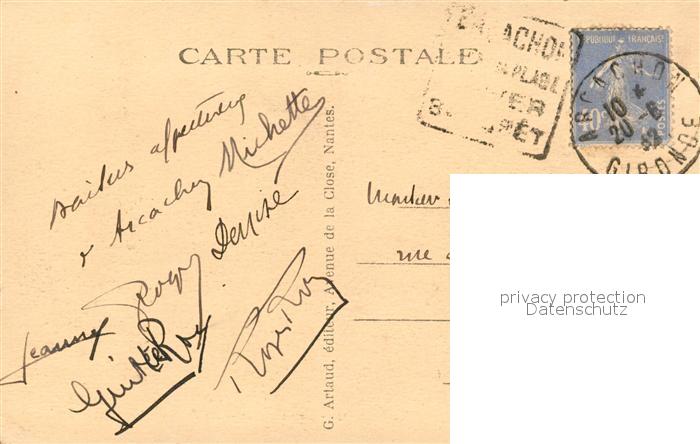 CARTE POSTALE
ARCACHON
PLAGE
FORÊT
REPUBLIQUE FRANÇAISE
40c
POSTES
ARCACHON
10 *
20-8
32
GIRONDE
affectueux
d'Arcachon Michette
Denise
Jeanne Roger
Ginette Roy
Roger Roy
G. Artaud, éditeur, Avenue de la Close, Nantes.
Monsieur
rue
privacy protection
Datenschutz